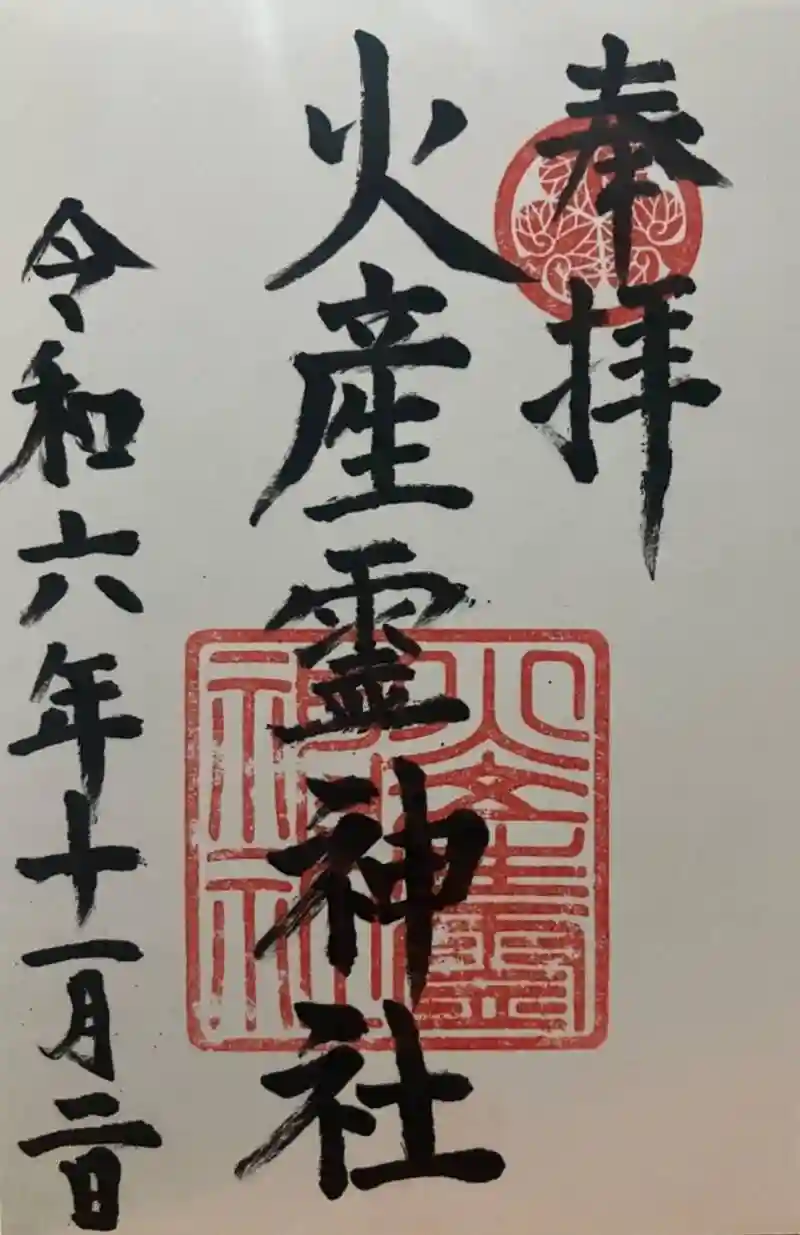 奉拝
火産霊神社
令和六年十一月二日
火産霊神社